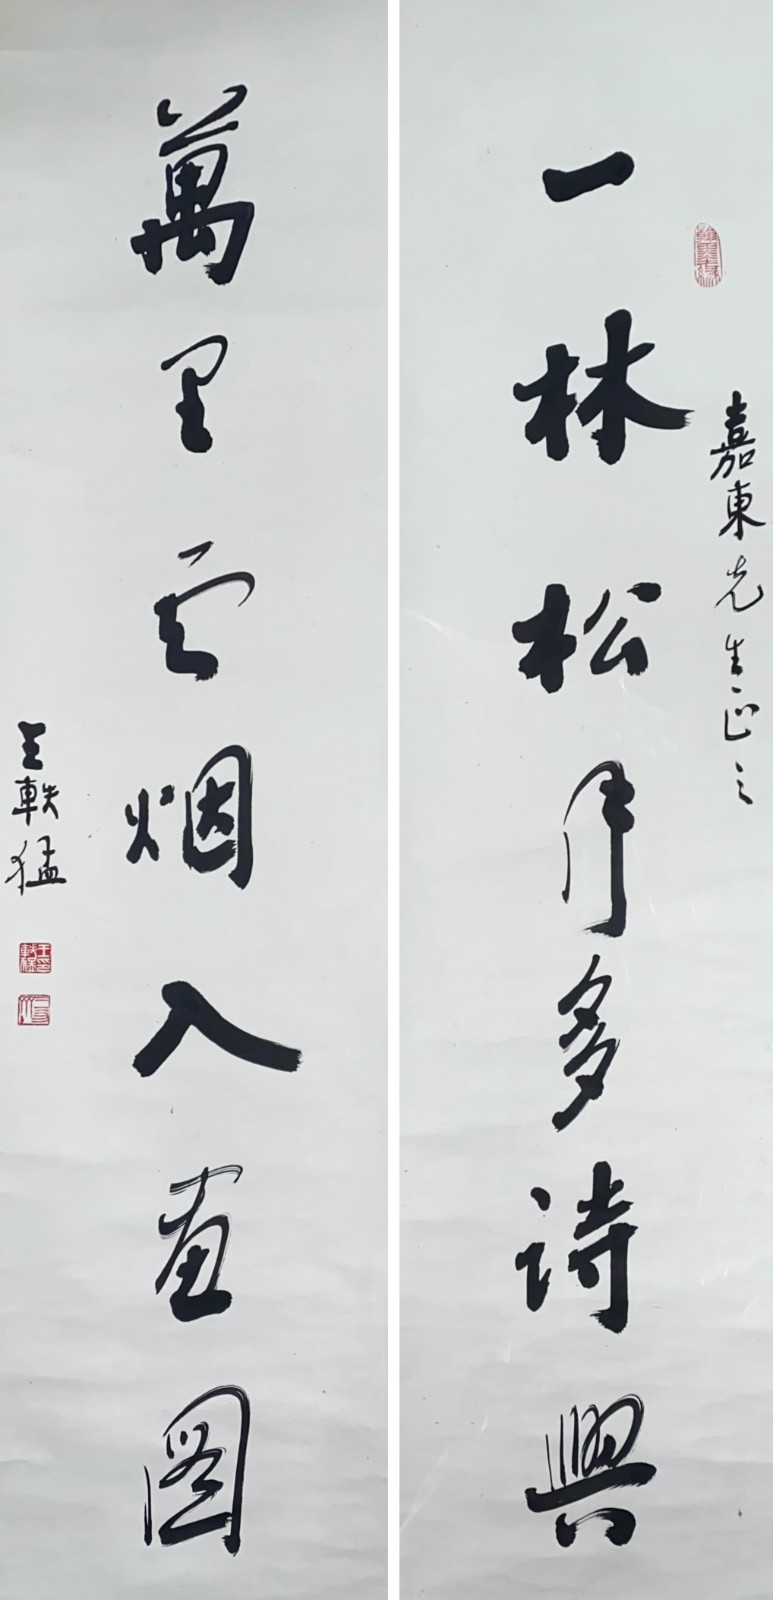 嘉東先生正之
一林松月多詩興
萬里云烟入畫图
王軼猛